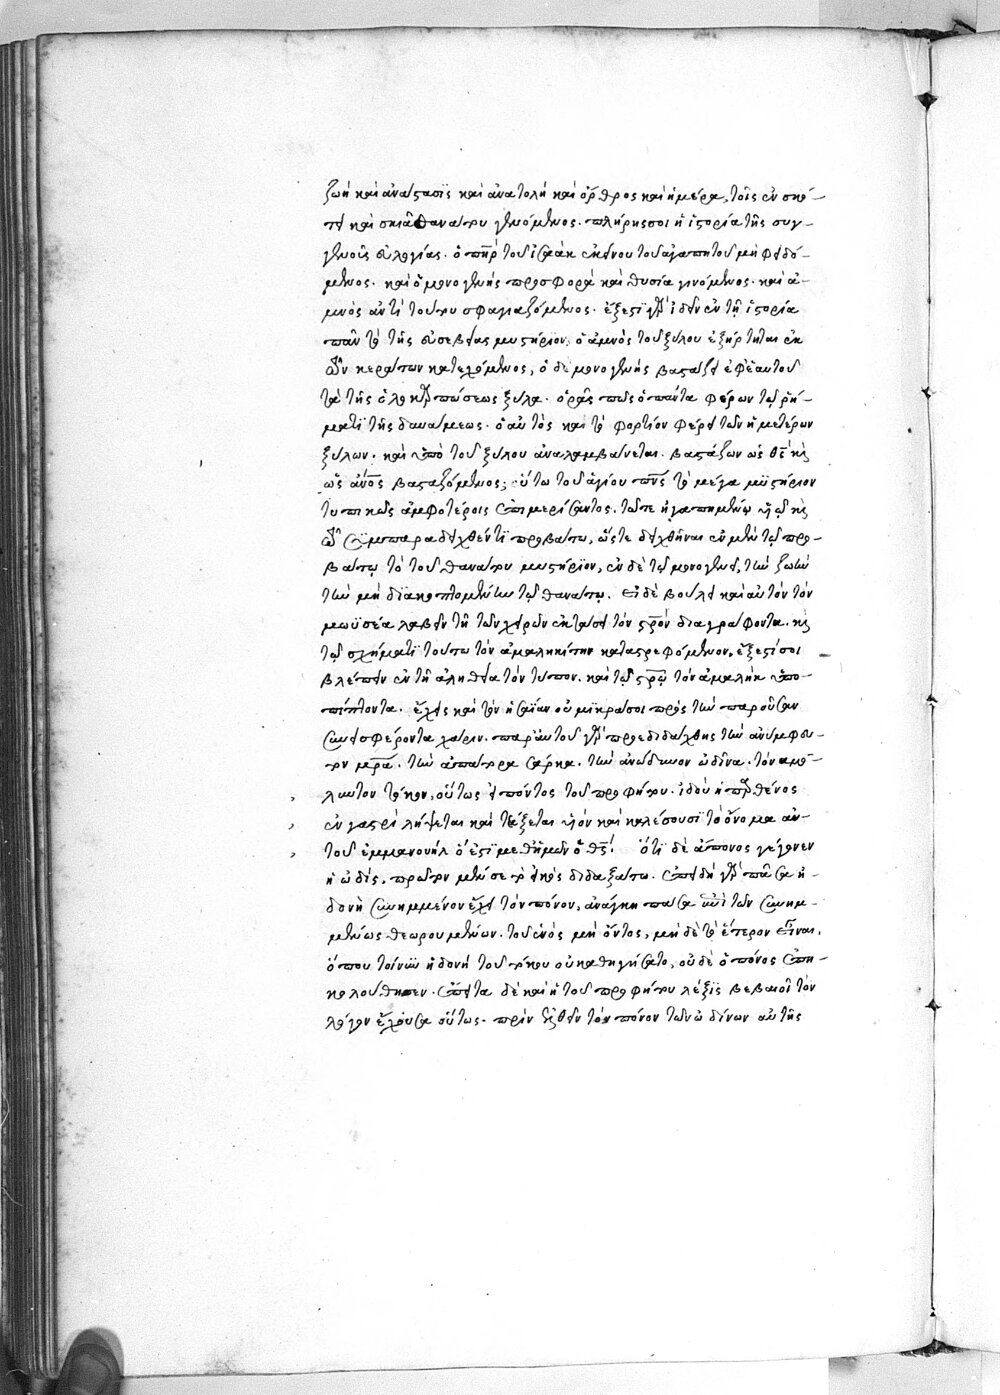 ζωὴ καὶ ἀνάστασις καὶ ἀνατολὴ καὶ ὄρθρος καὶ ἡμέρα, τοῖς ἐν σκό-
τει καὶ σκιᾶ θανάτου γενόμενος. πλήρης σοι ἡ ἱστορία τῆς συγ-
γενοῦς εὐλογίας. ὁ πηρ τοῦ ἰσαὰκ ἐκείνου τοῦ ἀγαπητοῦ μὴ φειδό-
μενος. καὶ ὁ μονογενὴς προσφορὰ καὶ θυσία γινόμενος. καὶ ἀ-
μνὸς ἀντὶ τούτου σφαγιαζόμενος. ἔξεστι γὰρ ἰδεῖν ἐν τῇ ἱστορία
πᾶν τὸ τῆς εὐσεβείας μυστήριον. ὁ ἀμνὸς τοῦ ξύλου ἐξήρτηται ἐκ
τῶν κεράτων κατεχόμενος, ὁ δὲ μονογενὴς βαστάζει ἐφ' ἑαυτοῦ
τὰ τῆς ὁλοκαρπώσεως ξύλα. ὁρᾷς πῶς ὁ πάντα φέρων τῷ ῥή-
ματι τῆς δυνάμεως. ὁ αὐτὸς καὶ τὸ φορτίον φέρει τῶν ἡμετέρων
ξύλων. καὶ ὑπὸ τοῦ ξύλου ἀναλαμβάνεται. βαστάζων ὡς θς καὶ
ὡς ἄνος βασταζόμενος; οὕτω τοῦ ἁγίου πνς τὸ μέγα μυστήριον
τυπικῶς ἀμφοτέροις ἐπιμερίσαντος. τῶ τε ἠγαπημένῳ υἱῷ καὶ
τῶ συμπαραδειχθέντι προβάτω, ὥστε δειχθῆναι ἐν μὲν τῷ προ-
βάτῳ τὸ τοῦ θανάτου μυστήριον, ἐν δὲ τῷ μονογενεῖ, τὴν ζωὴν
τὴν μὴ διακοπτομένην τῷ θανάτῳ. εἰ δὲ βούλει καὶ αὐτὸν τὸν
μωϋσέα λαβεῖν τῇ τῶν χειρῶν ἐκτάσει τὸν στρον διαγράφοντα. καὶ
τῷ σχήματι τούτω τὸν ἀμαληκίτην καταστρεφόμενον, ἔξεστί σοι
βλέπειν ἐν τῇ ἀληθεία τὸν τύπον. καὶ τῷ στρῶ τὸν ἀμαλὴκ ὑπο-
πίπτοντα. ἔχεις καὶ τὸν ἡσαΐαν οὐ μικρά σοι πρὸς τὴν παροῦσαν
συνεισφέροντα χάριν. παρ' αὐτοῦ γὰρ προεδιδάχθης τὴν ἀνύμφευ-
τον μρα. τὴν ἀπάτορα σάρκα. τὴν ἀνώδυνον ὠδῖνα. τὸν ἀμό-
λυντον τόκον, οὕτως εἰπόντος τοῦ προφήτου. ἰδοὺ ἡ παρθένος
ἐν γαστρὶ λήψεται καὶ τέξεται υἱὸν καὶ καλέσουσι τὸ ὄνομα αὐ-
τοῦ ἐμμανουήλ ὅ ἐστι μεθ' ἡμῶν ὁ θς! ὅτι δὲ ἄπονος γέγονεν
ἡ ὠδίς, πρῶτον μὲν σε τὸ εἰκὸς διδαξάτω. ἐπειδὴ γὰρ πᾶσα ἡ-
δονὴ συνημμένον ἔχει τὸν πόνον, ἀνάγκη πᾶσα ἐπὶ τῶν συνημ-
μένως θεωρουμένων. τοῦ ἑνὸς μὴ ὄντος, μὴ δὲ τὸ ἕτερον εἶναι.
ὅπου τοίνυν ἡδονὴ τοῦ τόκου οὐ καθηγήσατο, οὐδὲ ὁ πόνος ἐπη-
κολούθησεν. ἔπειτα δὲ καὶ ἡ τοῦ προφήτου λέξις βεβαιοῖ τὸν
λόγον ἔχουσα οὕτως. πρὶν ἐλθεῖν τὸν πόνον τῶν ὠδίνων αὐτῆς